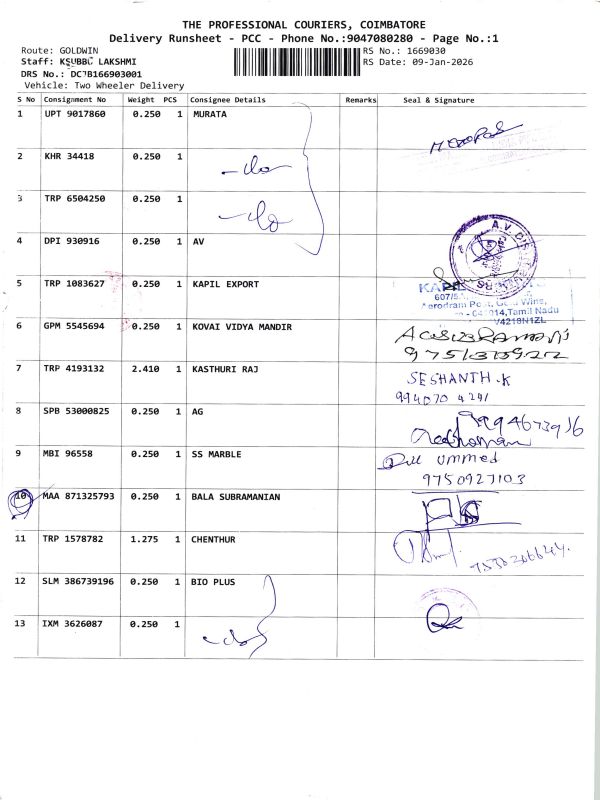 THE PROFESSIONAL COURIERS, COIMBATORE
Delivery Runsheet - PCC - Phone No.:9047080280 - Page No.:1
Route: GOLDWIN
RS No.: 1669030
Staff: KSUBBU LAKSHMI
RS Date: 09-Jan-2026
DRS No.: DC7B166903001
Vehicle: Two Wheeler Delivery
S No Consignment No Weight PCS Consignee Details Remarks Seal & Signature
1 UPT 9017860 0.250 1 MURATA
2 KHR 34418 0.250 1 -do-
3 TRP 6504250 0.250 1 -do
4 DPI 930916 0.250 1 AV
5 TRP 1083627 0.250 1 KAPIL EXPORT
Aerodram Post, Gold Wins,
014, Tamil Nadu
6 GPM 5545694 0.250 1 KOVAI VIDYA MANDIR
7 TRP 4193132 2.410 1 KASTHURI RAJ SESHANTH.K
994070 4241
8 SPB 53000825 0.250 1 AG 9994673916
9 MBI 96558 0.250 1 SS MARBLE ummed
9750927103
10 MAA 871325793 0.250 1 BALA SUBRAMANIAN
11 TRP 1578782 1.275 1 CHENTHUR
12 SLM 386739196 0.250 1 BIO PLUS
13 IXM 3626087 0.250 1 -do-